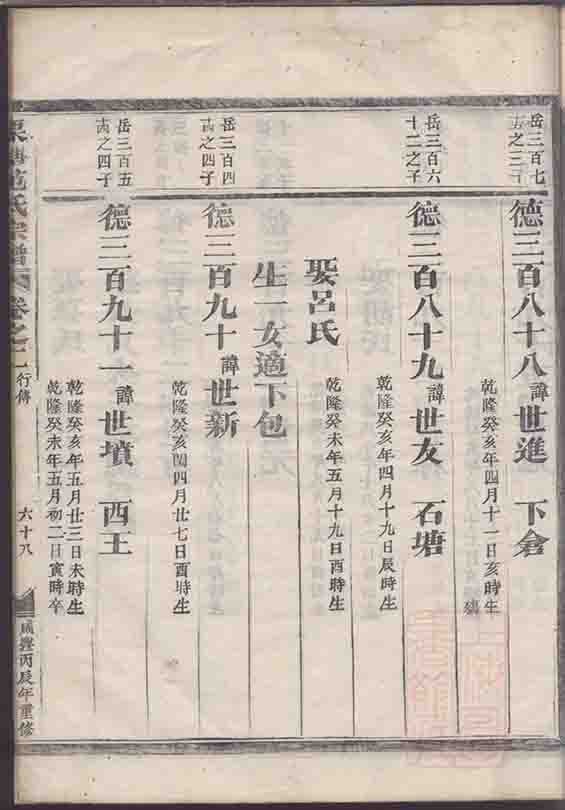 岳三百七
之三子
德三百八十八諱世進 下倉
乾隆癸亥年四月十一日亥時生
岳三百六
十二之子
德三百八十九諱世友 石塘
乾隆癸亥年四月十九日辰時生
娶呂氏
乾隆癸未年五月十九日酉時生
生一女適下包
岳三百四
之四子
德三百九十諱世新
乾隆癸亥閏四月廿七日酉時生
岳三百五
之四子
德三百九十一諱世墳 西王
乾隆癸亥年五月廿三日未時生
乾隆癸未年五月初二日寅時卒
范氏宗譜 卷之二 行傳 六十八 咸豐丙辰年重修